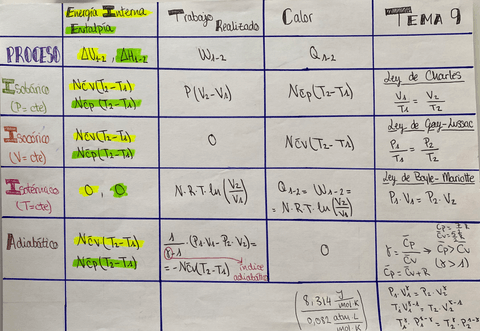 Energía Interna
Entalpía
Trabajo Realizado
Calor
TEMA 9
PROCESO
ΔU₁₋₂ , ΔH₁₋₂
W₁₋₂
Q₁₋₂
Isobárico
(P=cte)
Nc̄v(T₂-T₁)
Nc̄p(T₂-T₁)
P(V₂-V₁)
Nc̄p(T₂-T₁)
Ley de Charles
V₁/T₁ = V₂/T₂
Isocórico
(V=cte)
Nc̄v(T₂-T₁)
Nc̄p(T₂-T₁)
0
Nc̄v(T₂-T₁)
Ley de Gay-Lussac
P₁/T₁ = P₂/T₂
Isotérmico
(T=cte)
0 , 0
N·R·T·ln(V₂/V₁)
Q₁₋₂ = W₁₋₂ =
= N·R·T·ln(V₂/V₁)
Ley de Boyle-Mariotte
P₁·V₁ = P₂·V₂
Adiabático
Nc̄v(T₂-T₁)
Nc̄p(T₂-T₁)
1/(γ-1) · (P₁·V₁-P₂·V₂)=
= -Nc̄v(T₂-T₁)
Índice
adiabático
0
γ = c̄p/c̄v → c̄p > c̄v
(γ>1)
c̄p = c̄v+R
8,314 J/mol·K
0,082 atm·L/mol·K
P₁·V₁^γ = P₂·V₂^γ
T₁V₁^γ⁻¹ = T₂·V₂^γ⁻¹
T₁^γ·P₁^1-γ = T₂^γ·P₂^1-γ